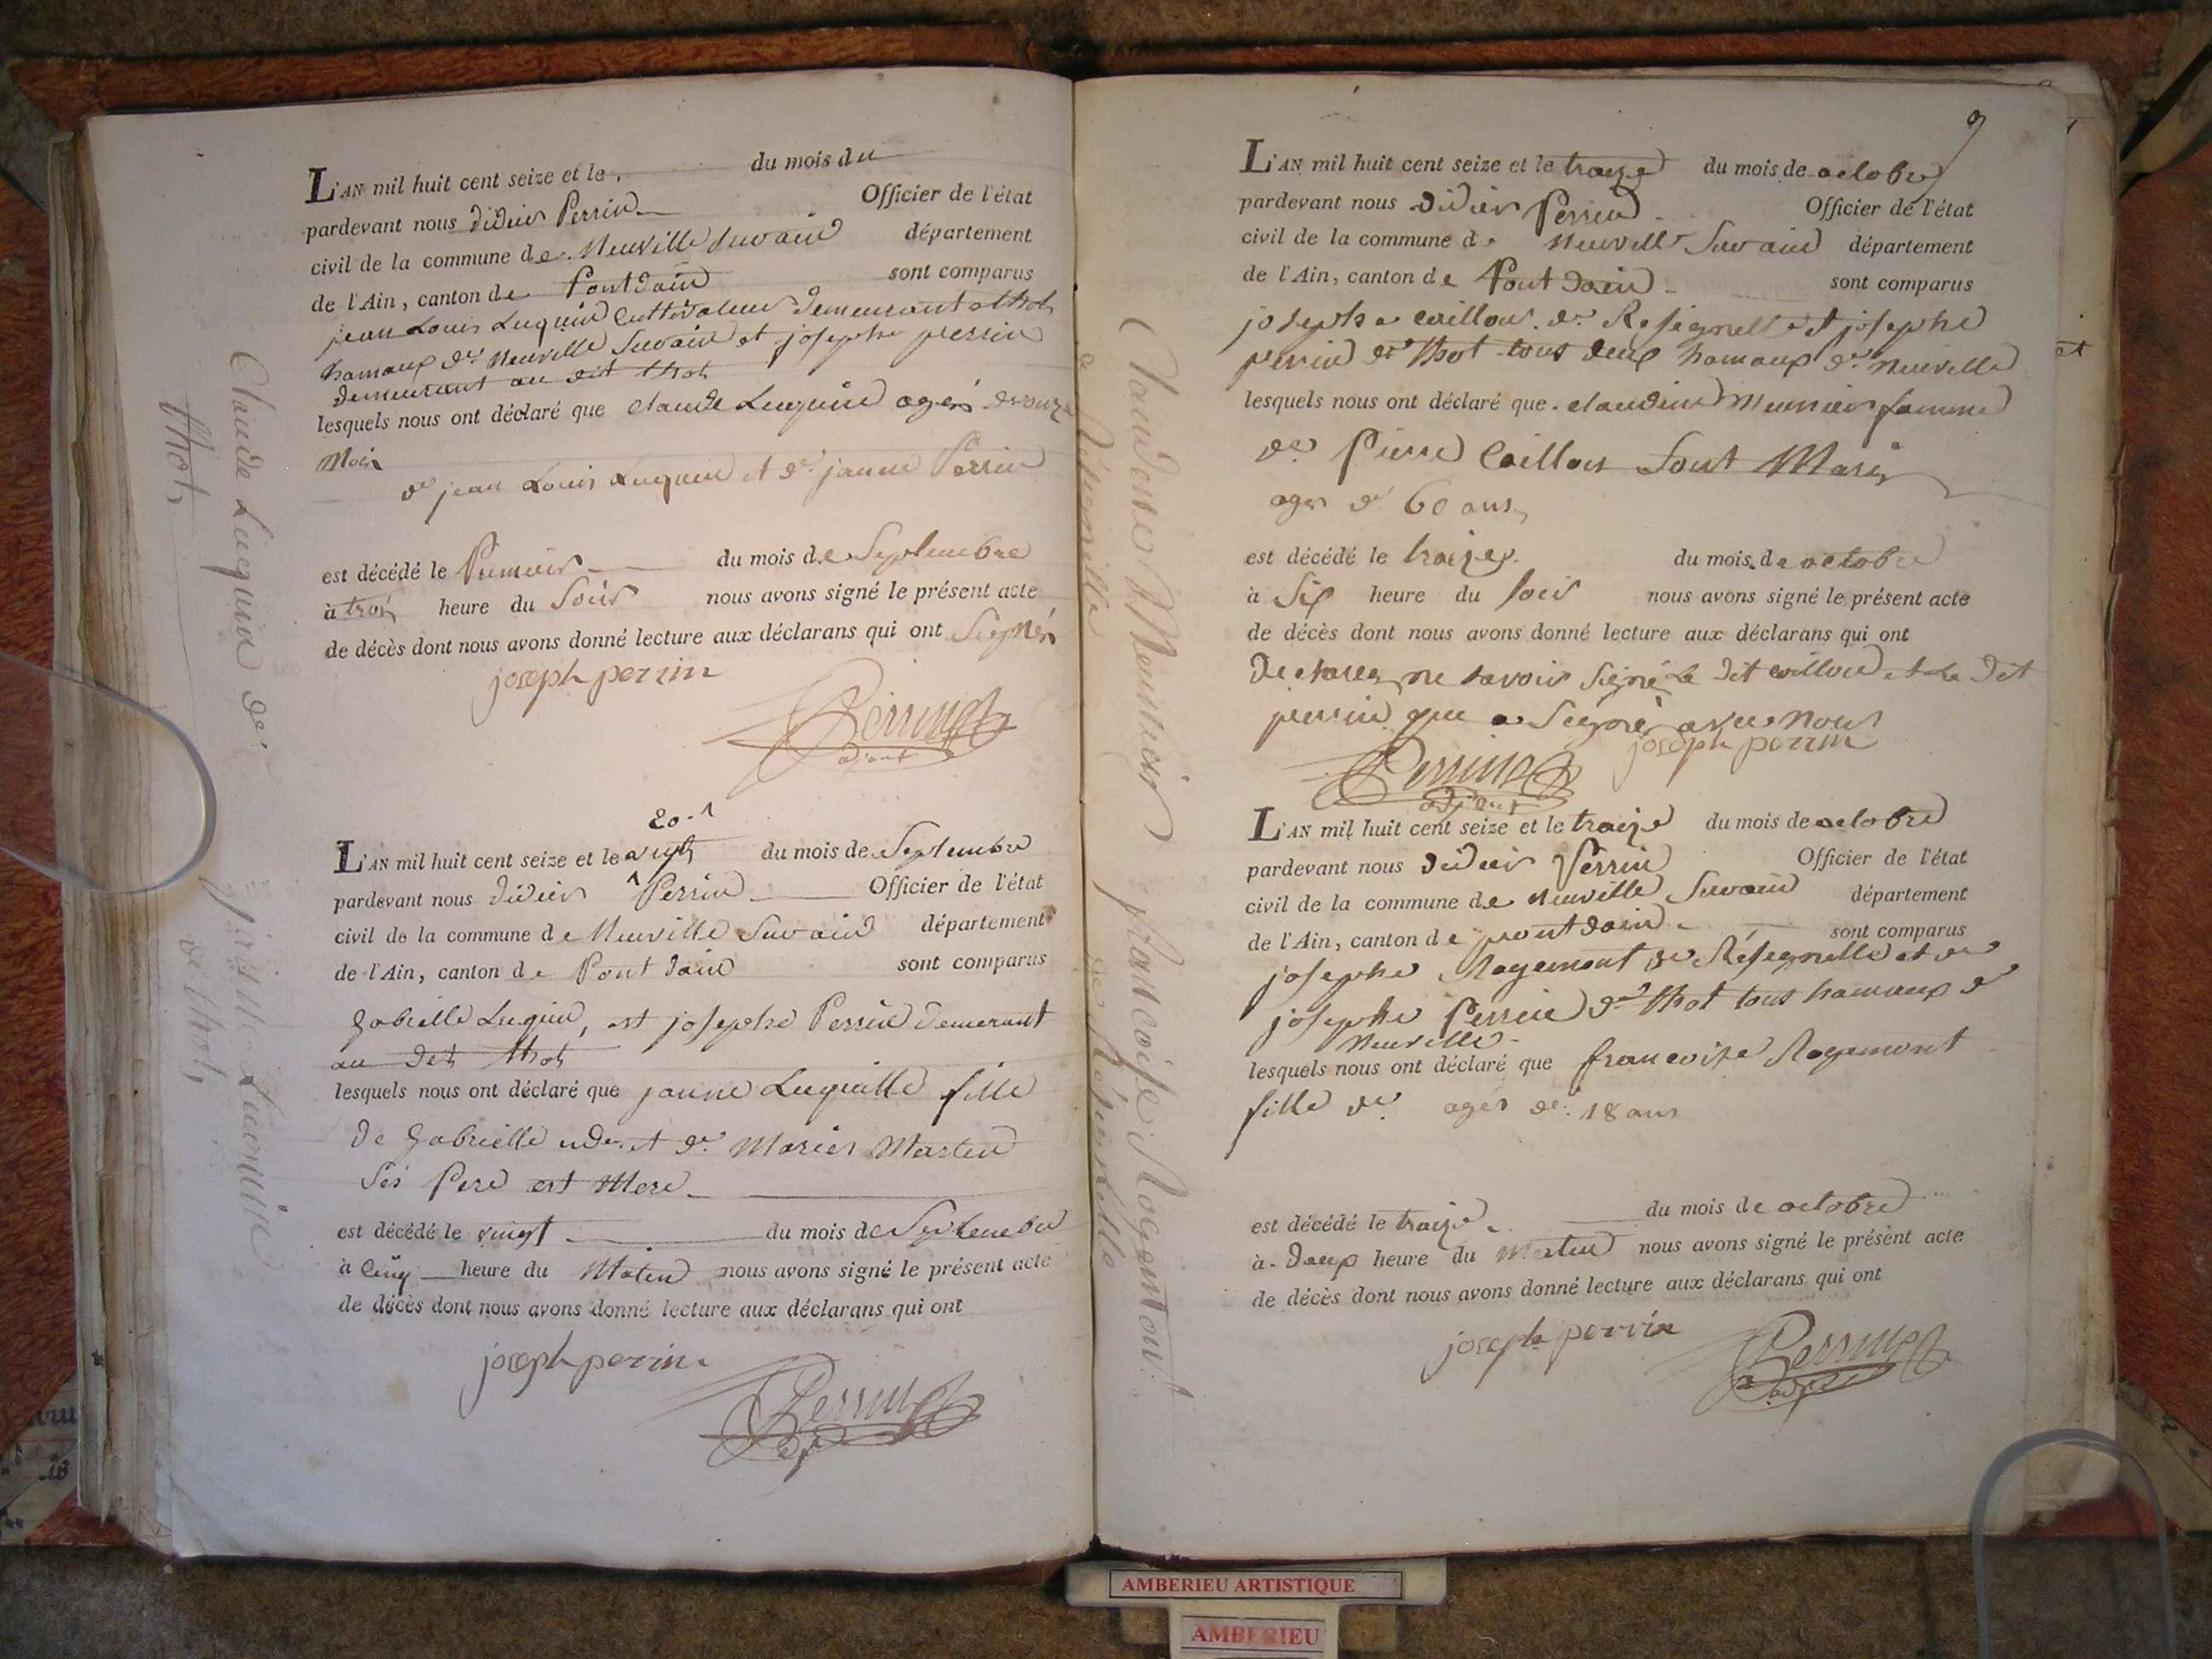 L'AN mil huit cent seize et le du mois du
pardevant nous didier Perrin Officier de l'état
civil de la commune de Neuville Suvain département
de l'Ain, canton de Pontdain sont comparus
jean Louis Luquin Culttivateur demeurant a thol
hamaux de Neuville Suvain et josephe perrin
demeurant au dit thol
lesquels nous ont déclaré que claude Luquin agés de onze
Mois
de jean Louis Luquin et de janne Perrin
est décédé le Premier du mois de Septembre
à trois heure du Soir nous avons signé le présent acte
de décès dont nous avons donné lecture aux déclarans qui ont Signés
joseph perrin
Perrin
adjoint
Claude Luquin de
thol
20
L'AN mil huit cent seize et le vingt du mois de Septembre
pardevant nous didier Perrin Officier de l'état
civil de la commune de Neuville Suvain département
de l'Ain, canton de Pont dain sont comparus
Gabrielle Luquin, est josephe Perrin demerant
au det thol
lesquels nous ont déclaré que janne Luquille fille
de Gabrielle et de Maries Martin
Ses Pere est Mere
est décédé le vingt du mois de Septembre
à Cinq heure du Matin nous avons signé le présent acte
de décès dont nous avons donné lecture aux déclarans qui ont
joseph perrin
Perrin
de thol
9
L'AN mil huit cent seize et le traize du mois de octobre
pardevant nous didier Perrin Officier de l'état
civil de la commune de Neuville Suvain département
de l'Ain, canton de Pont dain sont comparus
josephe caillou de Resignelle et josephe
perrin de thol tous deux hamaux de neuville
lesquels nous ont déclaré que claudine Meunier famme
de Pierre Caillou Sont Maris
ages de 60 ans
est décédé le traize du mois de octobre
à Six heure du soir nous avons signé le présent acte
de décès dont nous avons donné lecture aux déclarans qui ont
declarer ne savoir signé le dit caillou et le dit
perrin que a Signé avec nous
joseph perrin
Perrin
adjoint
Claudine Meunier
de Résignelle
L'AN mil huit cent seize et le traize du mois de octobre
pardevant nous didier Perrin Officier de l'état
civil de la commune de neuville Suvain département
de l'Ain, canton de pontdain sont comparus
josephe Rogemont de Résegnelle et de
josephe Perrin de thol tous hamaux de
Neuville
lesquels nous ont déclaré que francoise Rogemont
fille de agés de 18 ans
est décédé le traize du mois de octobre
à deux heure du Matin nous avons signé le présent acte
de décès dont nous avons donné lecture aux déclarans qui ont
joseph perrin
Perrin
AMBERIEU ARTISTIQUE
AMBERIEU